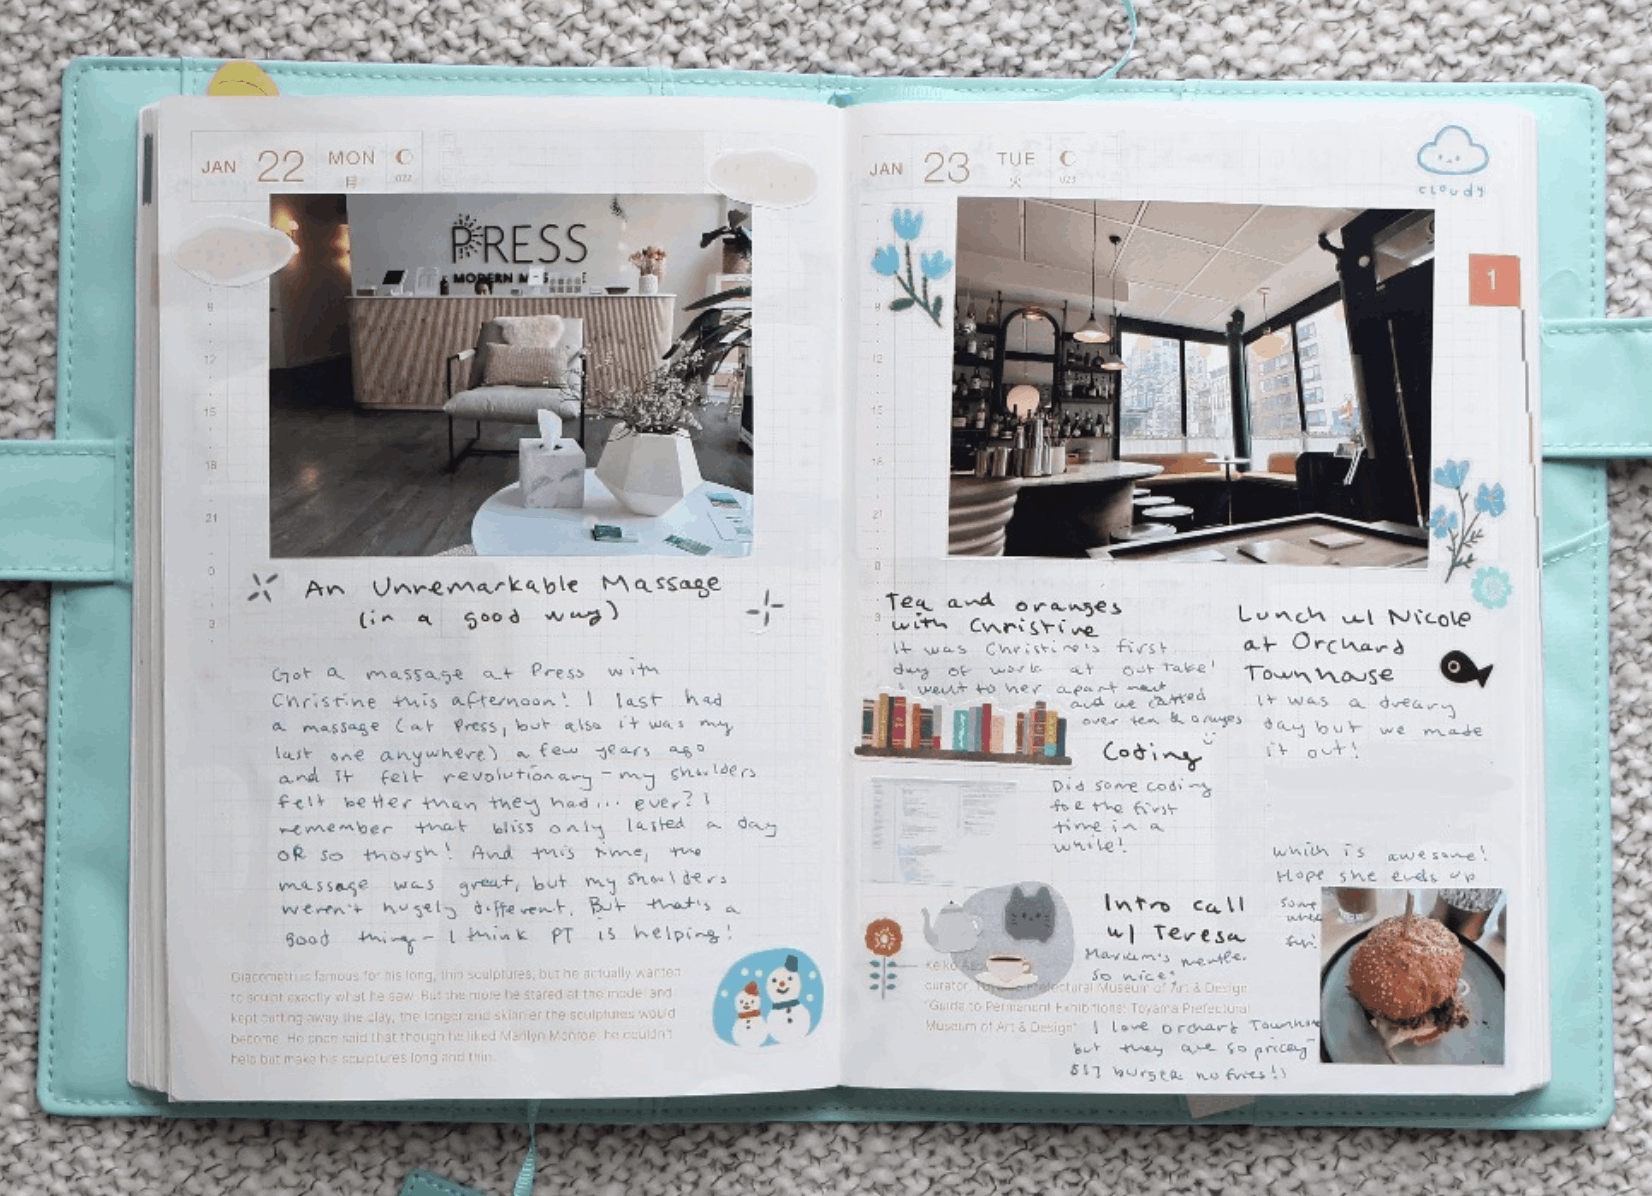 JAN 22 MON
月
022
PRESS
MODERN M
9
12
15
18
21
0
3
An Unremarkable Massage
(in a good way)
Got a massage at Press with
Christine this afternoon! I last had
a massage (at Press, but also it was my
last one anywhere) a few years ago
and it felt revolutionary - my shoulders
felt better than they had... ever? I
remember that bliss only lasted a day
OR so though! And this time, the
massage was great, but my shoulders
weren't hugely different. But that's a
good thing - I think PT is helping!
Giacometti is famous for his long, thin sculptures, but he actually wanted
to sculpt exactly what he saw. But the more he stared at the model and
kept cutting away the clay, the longer and skinnier the sculptures would
become. He once said that though he liked Marilyn Monroe, he couldn't
help but make his sculptures long and thin.
JAN 23 TUE
火
023
cloudy
1
9
12
15
18
21
0
3
Tea and oranges
with Christine
It was Christine's first
day of work at outtake!
I went to her apartment
and we chatted
over tea & oranges
Coding
Did some coding
for the first
time in a
while!
Intro call
w/ Teresa
so nice!
Keiko
curator, Toyama Prefectural Museum of Art & Design
"Guide to Permanent Exhibitions: Toyama Prefectural
Museum of Art & Design"
Lunch w/ Nicole
at Orchard
Townhouse
It was a dreary
day but we made
it out!
which is awesome!
Hope she ends up
some
I love Orchard Townhouse
but they are so pricey-
$17 burger no fries!)